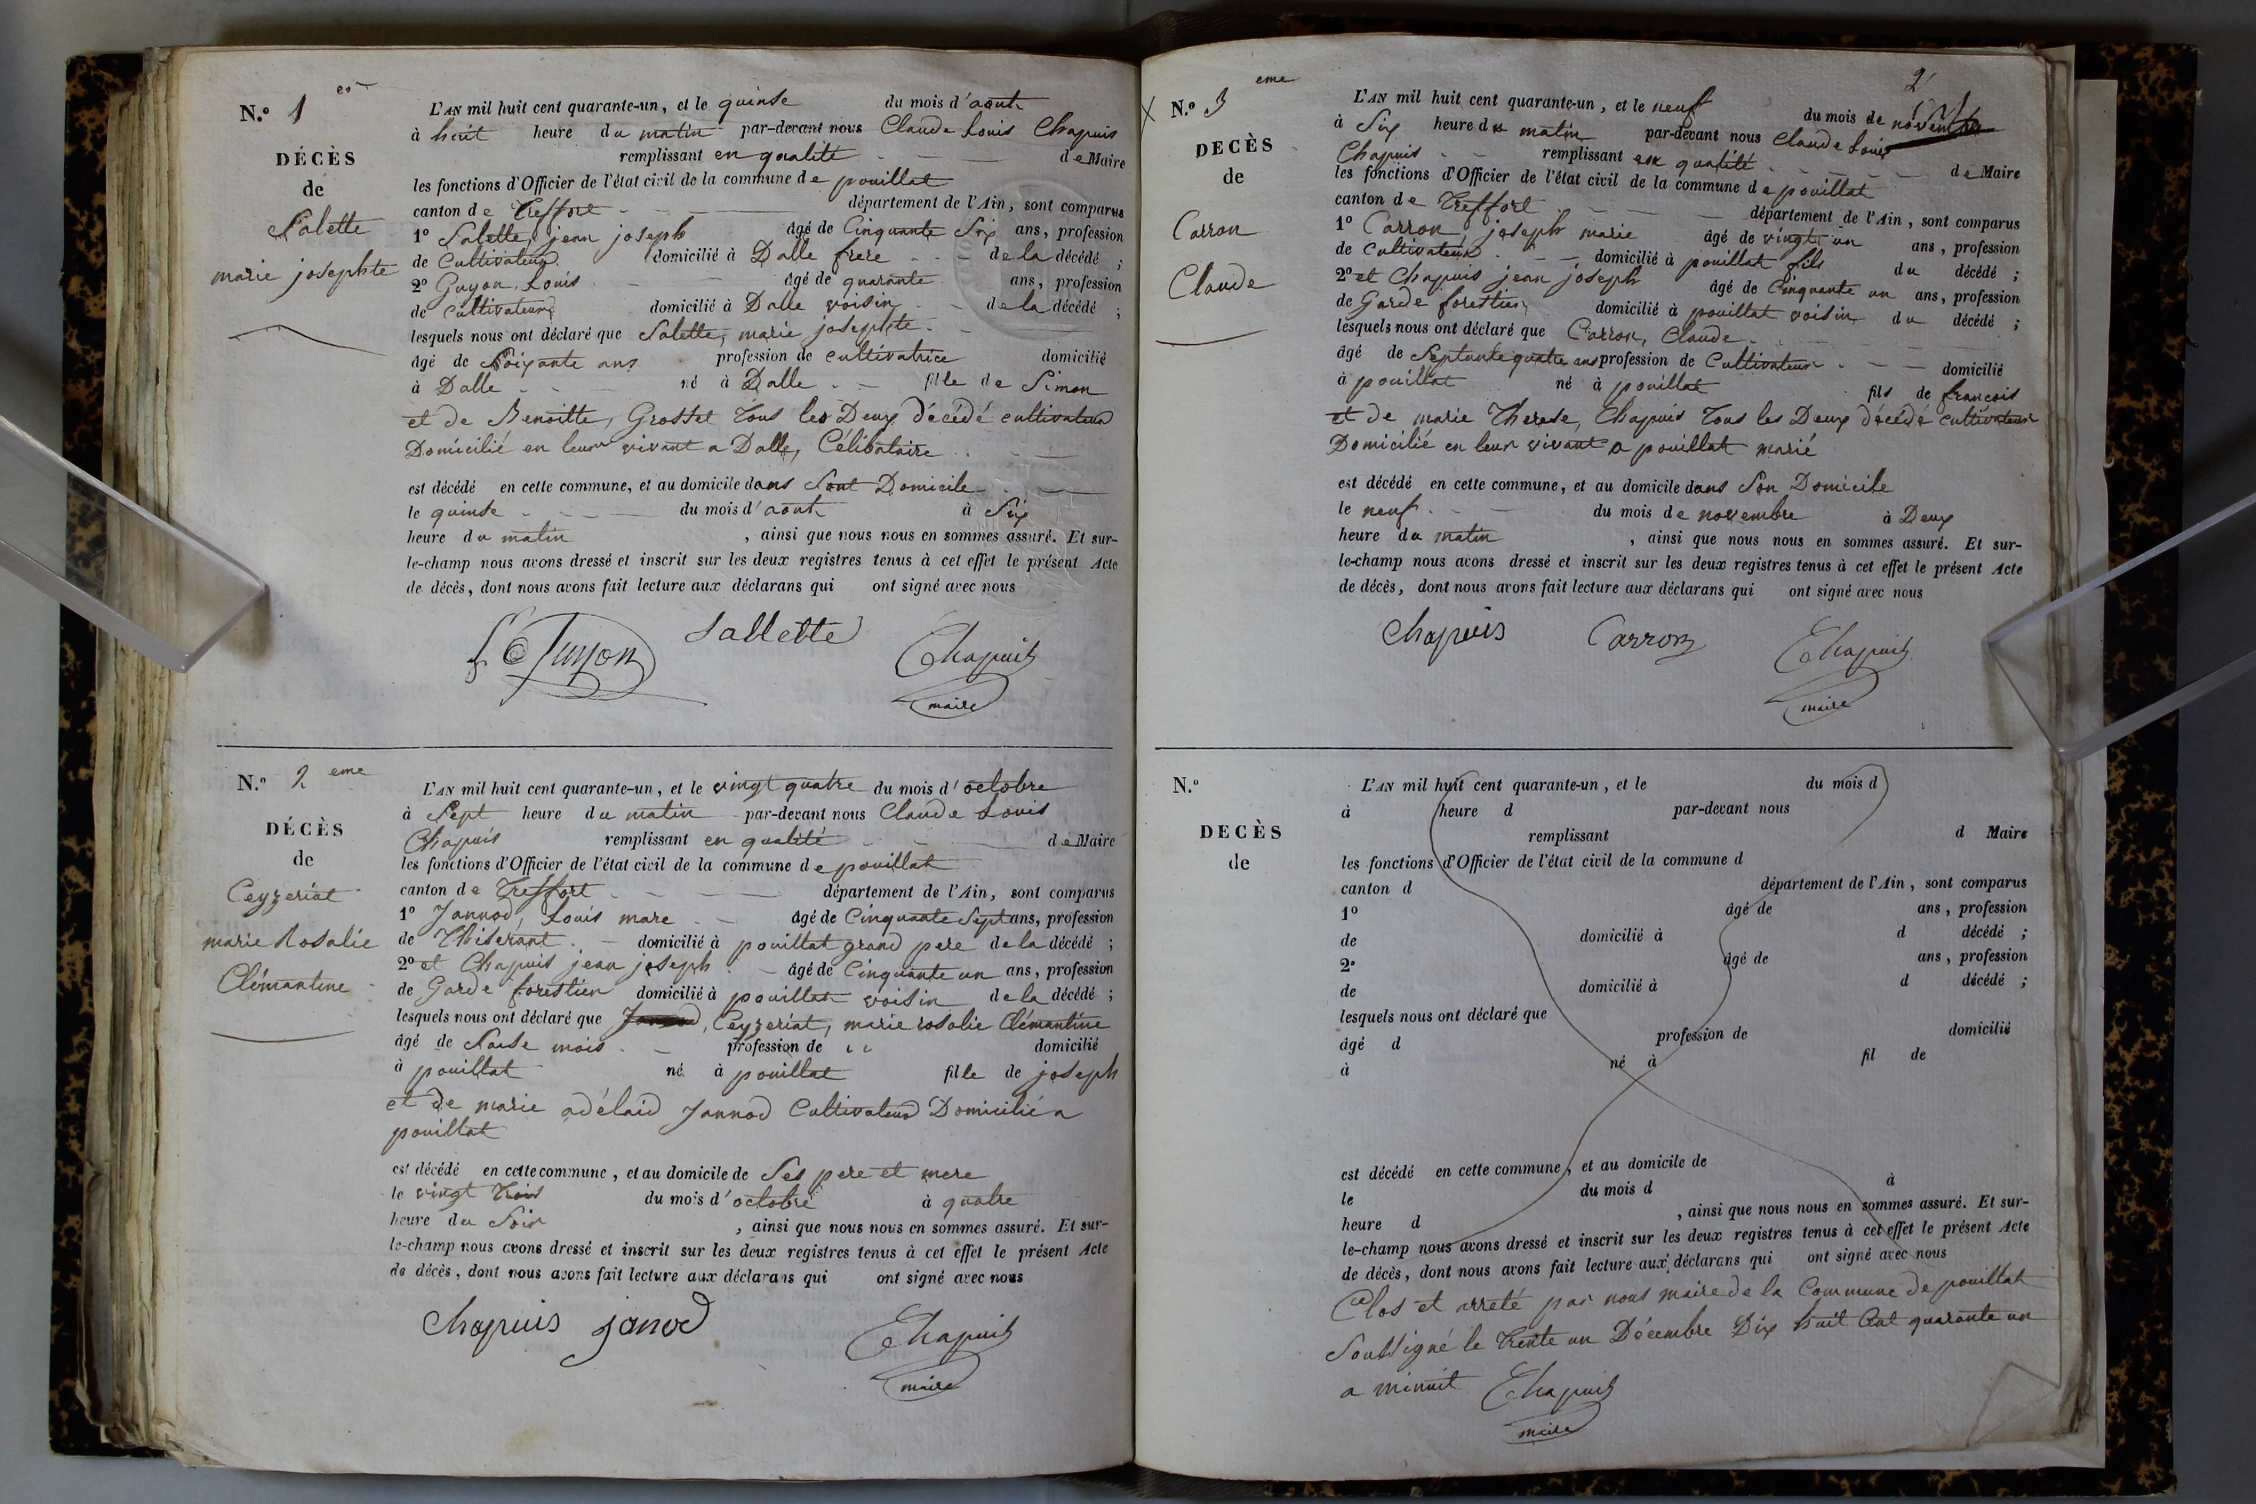 N.° 1 er
DÉCÈS
de
Salette
marie josephte
L'AN mil huit cent quarante-un, et le quinse du mois d'aout
à huit heure du matin par-devant nous Claude Louis Chapuis
remplissant en qualité de Maire
les fonctions d'Officier de l'état civil de la commune de pouillat
canton de Treffort département de l'Ain, sont comparus
1° Salette, jean joseph âgé de Cinquante Six ans, profession
de Cultivateur domicilié à Dalle frere de la décédé ;
2° Guyon, Louis âgé de quarante ans, profession
de Cultivateur domicilié à Dalle voisin de la décédé ;
lesquels nous ont déclaré que Salette, marie josephte
âgé de Soixante ans profession de cultivatrice domicilié
à Dalle né à Dalle fille de Simon
et de Benoitte, Grosset tous les Deux décédé cultivateur
Domicilié en leur vivant a Dalle, Célibataire
est décédé en cette commune, et au domicile dans Sont Domicile
le quinse du mois d'aout à Six
heure du matin , ainsi que nous nous en sommes assuré. Et sur-
le-champ nous avons dressé et inscrit sur les deux registres tenus à cet effet le présent Acte
de décès, dont nous avons fait lecture aux déclarans qui ont signé avec nous
Guyon Sallette Chapuis
maire
N.° 2 eme
DÉCÈS
de
Ceyzeriat
marie Rosalie
Clémantine
L'AN mil huit cent quarante-un, et le vingt quatre du mois d'octobre
à Sept heure du matin par-devant nous Claude Louis
Chapuis remplissant en qualité de Maire
les fonctions d'Officier de l'état civil de la commune de pouillat
canton de Treffort département de l'Ain, sont comparus
1° Jannod, Louis marc âgé de Cinquante Sept ans, profession
de Thiserant domicilié à pouillat grand pere de la décédé ;
2° et Chapuis jean joseph âgé de Cinquante un ans, profession
de Garde forestier domicilié à pouillat voisin de la décédé ;
lesquels nous ont déclaré que Ceyzeriat, marie rosalie Clémantine
âgé de Saise mois profession de " domicilié
à pouillat né à pouillat fille de joseph
et de marie adélaid Jannod Cultivateur Domicilié a
pouillat
est décédé en cette commune, et au domicile de Ses pere et mere
le vingt trois du mois d'octobre à quatre
heure du Soir , ainsi que nous nous en sommes assuré. Et sur-
le-champ nous avons dressé et inscrit sur les deux registres tenus à cet effet le présent Acte
de décès, dont nous avons fait lecture aux déclarans qui ont signé avec nous
Chapuis janod Chapuis
maire
2
N.° 3 eme
DECÈS
de
Carron
Claude
L'AN mil huit cent quarante-un, et le neuf du mois de novembre
à Six heure du matin par-devant nous Claude Louis
Chapuis remplissant en qualité de Maire
les fonctions d'Officier de l'état civil de la commune de pouillat
canton de Treffort département de l'Ain, sont comparus
1° Carron, joseph marie âgé de vingt un ans, profession
de Cultivateur domicilié à pouillat fils du décédé ;
2° et Chapuis jean joseph âgé de Cinquante un ans, profession
de Garde forestier domicilié à pouillat voisin du décédé ;
lesquels nous ont déclaré que Carron, Claude
âgé de Septante quatre ans profession de Cultivateur domicilié
à pouillat né à pouillat fils de francois
et de marie Therese, Chapuis tous les Deux décédé cultivateur
Domicilié en leur vivant a pouillat marié
est décédé en cette commune, et au domicile dans Son Domicile
le neuf du mois de novembre à Deux
heure du matin , ainsi que nous nous en sommes assuré. Et sur-
le-champ nous avons dressé et inscrit sur les deux registres tenus à cet effet le présent Acte
de décès, dont nous avons fait lecture aux déclarans qui ont signé avec nous
Chapuis Carron Chapuis
maire
N.°
DECÈS
de
L'AN mil huit cent quarante-un, et le du mois d
à heure d par-devant nous
remplissant d Maire
les fonctions d'Officier de l'état civil de la commune d
canton d département de l'Ain, sont comparus
1° âgé de ans, profession
de domicilié à d décédé ;
2° âgé de ans, profession
de domicilié à d décédé ;
lesquels nous ont déclaré que
âgé d profession de domicilié
à né à fil de
est décédé en cette commune, et au domicile de
le du mois d à
heure d , ainsi que nous nous en sommes assuré. Et sur-
le-champ nous avons dressé et inscrit sur les deux registres tenus à cet effet le présent Acte
de décès, dont nous avons fait lecture aux déclarans qui ont signé avec nous
Clos et arreté par nous maire de la Commune de pouillat
Soussigné le trente un Décembre Dix huit Cent quarante un
a minuit Chapuis
maire